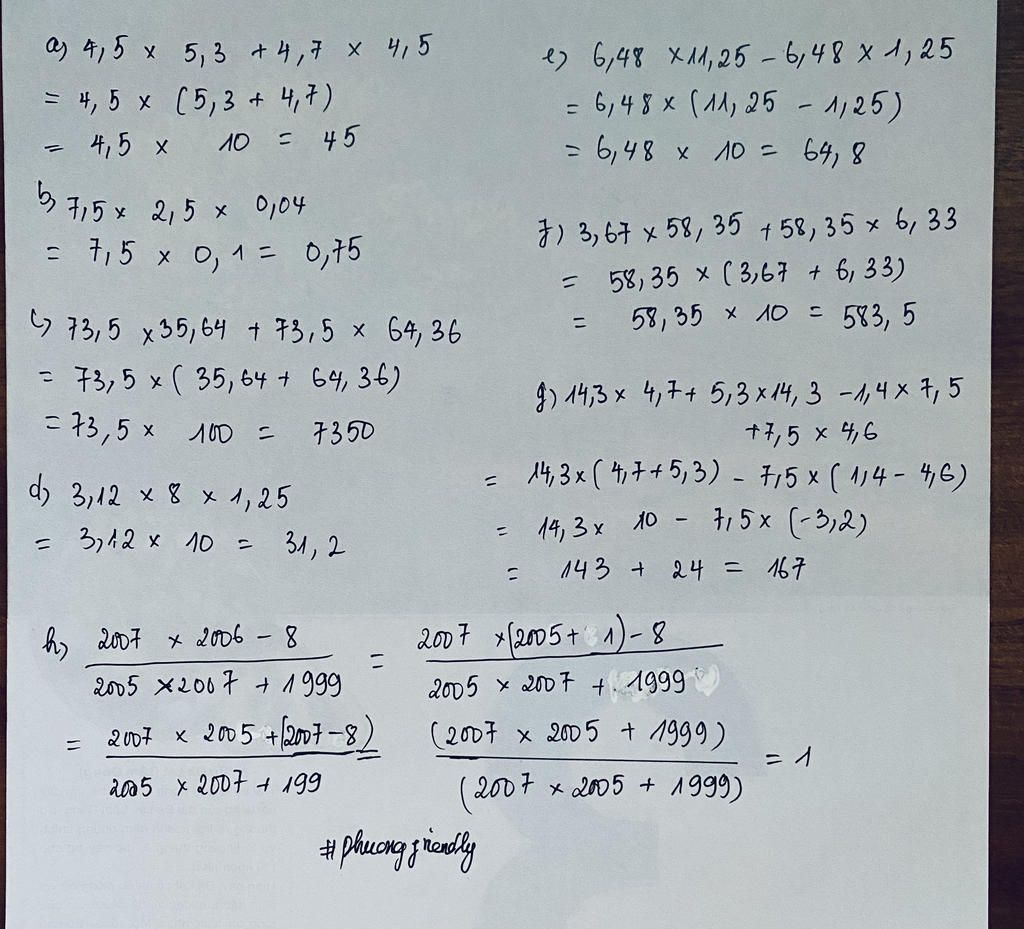 a) 4,5 × 5,3 + 4,7 × 4,5
= 4,5 × (5,3 + 4,7)
= 4,5 × 10 = 45
b) 7,5 × 2,5 × 0,04
= 7,5 × 0,1 = 0,75
c) 73,5 × 35,64 + 73,5 × 64,36
= 73,5 × (35,64 + 64,36)
= 73,5 × 100 = 7350
d) 3,12 × 8 × 1,25
= 3,12 × 10 = 31,2
e) 6,48 × 11,25 - 6,48 × 1,25
= 6,48 × (11,25 - 1,25)
= 6,48 × 10 = 64,8
f) 3,67 × 58,35 + 58,35 × 6,33
= 58,35 × (3,67 + 6,33)
= 58,35 × 10 = 583,5
g) 14,3 × 4,7 + 5,3 × 14,3 - 1,4 × 7,5
+7,5 × 4,6
= 14,3 × (4,7 + 5,3) - 7,5 × (1,4 - 4,6)
= 14,3 × 10 - 7,5 × (-3,2)
= 143 + 24 = 167
h) 2007 × 2006 - 8 = 2007 × (2005 + 1) - 8
2005 × 2007 + 1999 2005 × 2007 + 1999
= 2007 × 2005 + (2007 - 8) = (2007 × 2005 + 1999) = 1
2005 × 2007 + 199 (2007 × 2005 + 1999)
#phuongfriendly